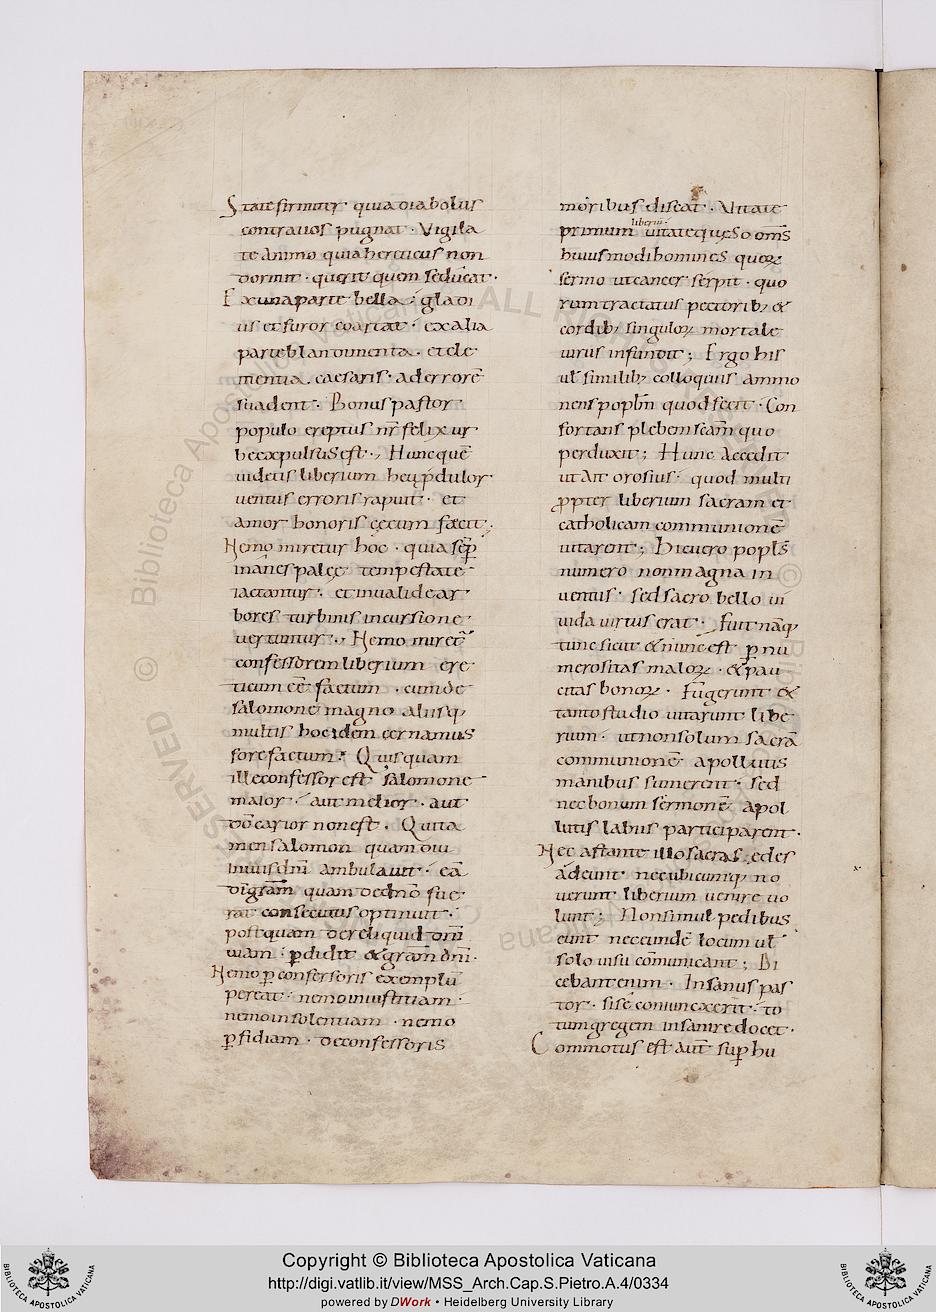 State firmiter · quia diabolus
contra uos pugnat · Vigila
te animo quia hereticus non
dormit · querit quem seducat ·
Ex una parte bella · gladi
us et furor coartat · ex alia
parte blandimenta · et cle
mentia caesaris · ad errorē
suadent · Bonus pastor
populo ereptus nr̄ felix ur
be expulsus est · Hunc quē
uidetis liberium heu p̱dulor
uentus erroris rapuit · et
amor honoris cęcum fæcit ·
Nemo miretur hoc · quia sēp
inanes palęę tempestate
iactantur · et inualide ar
bores turbinis incursione
uertuntur · Nemo miret̄
confessorem liberium ere
ticum eē factum · cum de
salomone magno aliisq;
multis hoc idem cernamus
fore factum · Quisquam
ille confessor est salomone
maior · aut melior · aut
dō carior non est · Quita
men salomon quamdiu
in uiis dnī ambulauit · eā
quam de dnō fue
rat consecutus optinuit ·
postquam dereliquid dnī
uiam · p̱didit & grām dnī ·
Nemo p̱ confessoris exemplū
pereat · nemo iniustitiam ·
nemo insolentiam · nemo
p̱fidiam · de confessoris
moribus discat · Vitate
liberiū
primum uitate quęso om̄s
huiusmodi homines quoꝝ
sermo ut cancer serpit · quo
rum tractatus pectorib; &
cordib; singuloꝝ mortale
uirus infundit ; Ergo his
ul̄ similib; colloquiis ammo
nens popl̄m quod fecit · Con
fortans plebem scām quo
perduxit ; Hunc accedit
ut ait orosius · quod multi
p̱pter liberium sacram et
catholicam communionē
uitarent ; Hic uero popl̄s
numero non magna in
uentus · sed sacro bello ui
uida uirtus erat · Fuit nāq;
tunc sicut & nunc est p̱ nu
merositas maloꝝ · & pau
citas bonoꝝ · Fugerunt &
tanto studio uitarunt libe
rium · ut non solum sacrā
communionē a pollutis
manibus sumerent · sed
nec bonum sermonē a pol
lutis labiis participarent ·
Nec astante illo sacras ędes
adeunt · nec ubicumq; no
uerunt liberium uenire uo
lunt ; Non simul pedibus
eunt nec eundē locum ul̄
solo uisu com̄unicant ; Di
cebant enim · Insanus pas
tor · si se comunexerit · to
tum gregem insanire docet ·
Commotus est aut̄ sup̱ hu
Copyright © Biblioteca Apostolica Vaticana
http://digi.vatlib.it/view/MSS_Arch.Cap.S.Pietro.A.4/0334
powered by DWork • Heidelberg University Library